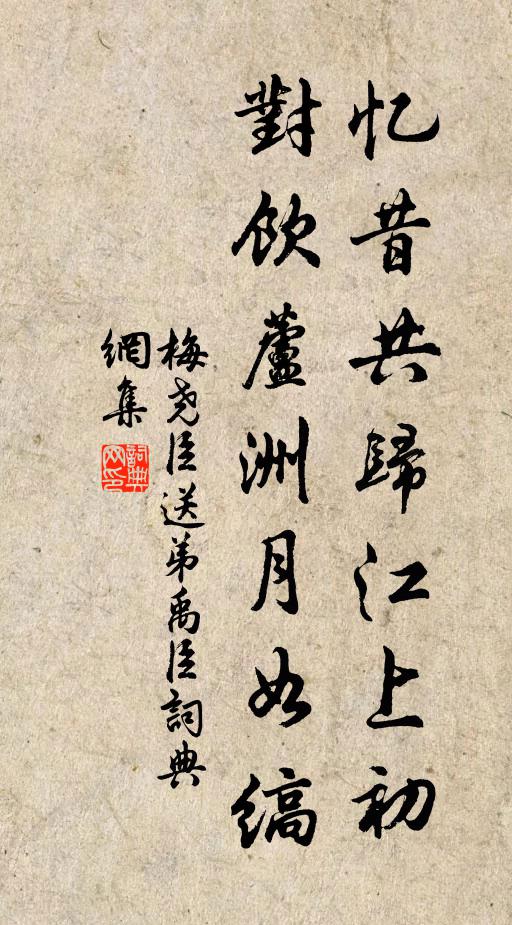 忆昔共歸江上初
對飲蘆洲月如縞
梅尧臣送弟禹臣詞典
網集
詞典
网印